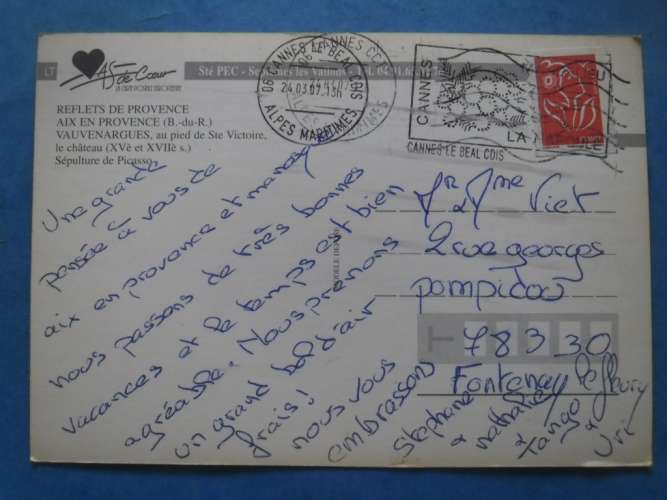 As de Cœur
LT
Sté PEC -
REFLETS DE PROVENCE
AIX EN PROVENCE (B.-du-R.)
VAUVENARGUES, au pied de Ste Victoire,
le château (XVè et XVIIè s.)
Sépulture de Picasso.
06 CANNES LE BEAL CDIS
24.03.07.15H
ALPES MARITIMES
CANNES
LA
CANNES LE BEAL CDIS
Une grande
pensée à vous de
aix en provence et
nous passons de très bonnes
vacances et le temps est bien
agréable. Nous prenons
un grand bol d'air
frais!
nous vous
embrassons
Stephane
& nathalie
& Tango
& Uri
Mr Mme Viet
2 rue georges
pompidou
78330
Fontenay le fleury